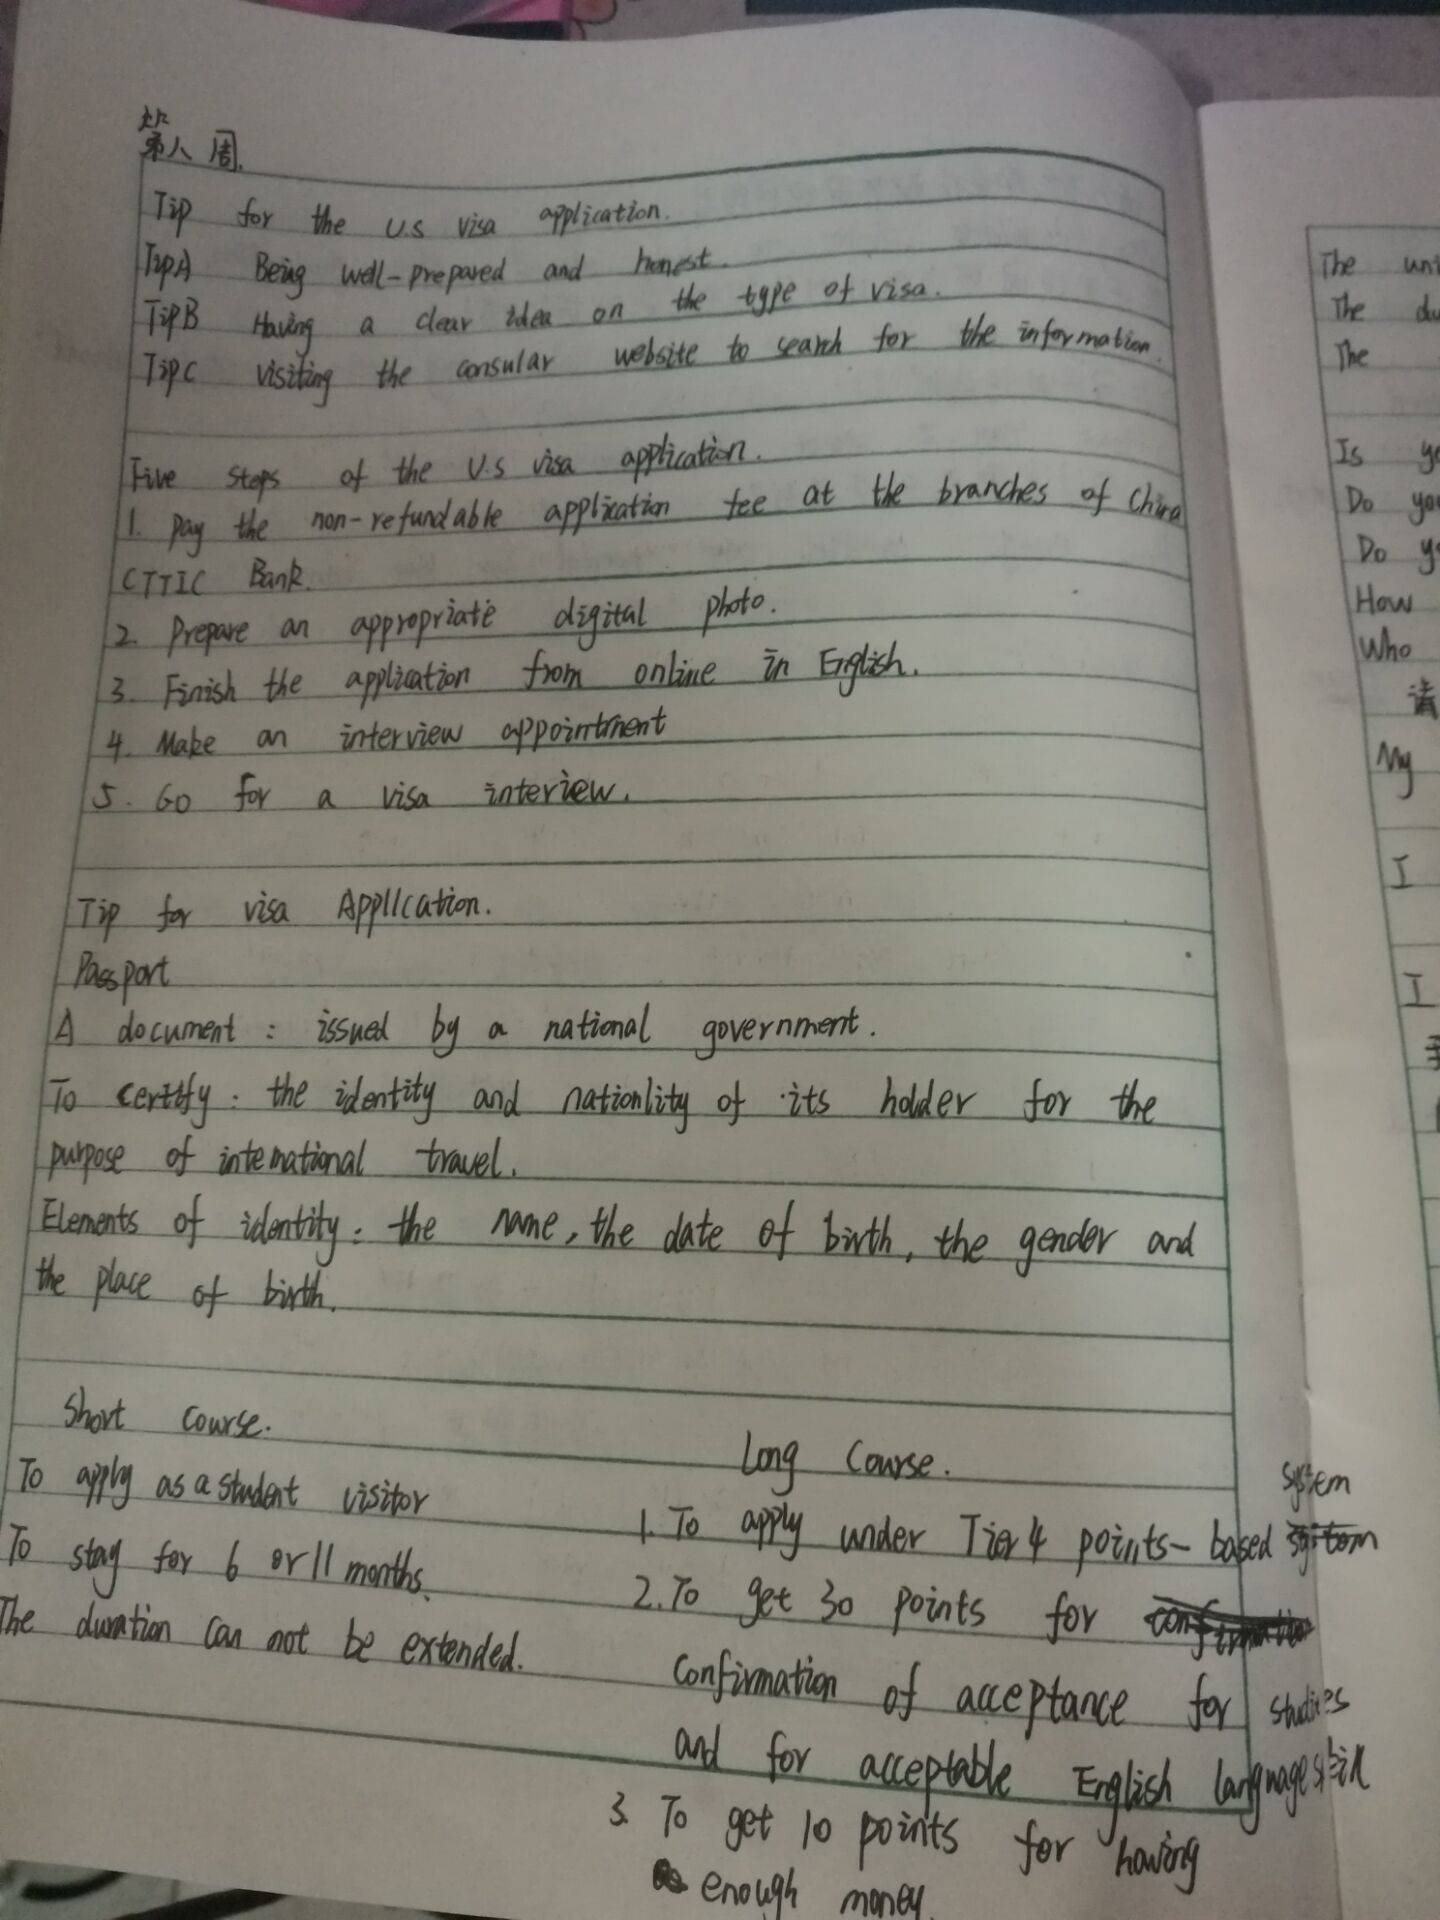 第八周.
Tip for the U.S visa application.
TipA Being well-prepared and honest.
TipB Having a clear idea on the type of visa.
TipC visiting the consular website to search for the information.
Five steps of the U.S visa application.
1. pay the non-refundable application fee at the branches of China
CTTIC Bank.
2. Prepare an appropriate digital photo.
3. Finish the application from online in English.
4. Make an interview appointment
5. Go for a visa interview.
Tip for visa Application.
Passport
A document: issued by a national government.
To certify: the identity and nationlity of its holder for the
purpose of international travel.
Elements of identity: the name, the date of birth, the gender and
the place of birth.
Short Course.
To apply as a student visitor
To stay for 6 or 11 months.
The duration can not be extended.
Long Course.
1. To apply under Tier 4 points-based system
2. To get 30 points for
confirmation of acceptance for studies
and for acceptable English language skill
3. To get 10 points for having
enough money.
The
The
The
Is
Do
Do
How
Who
请
My
I
I